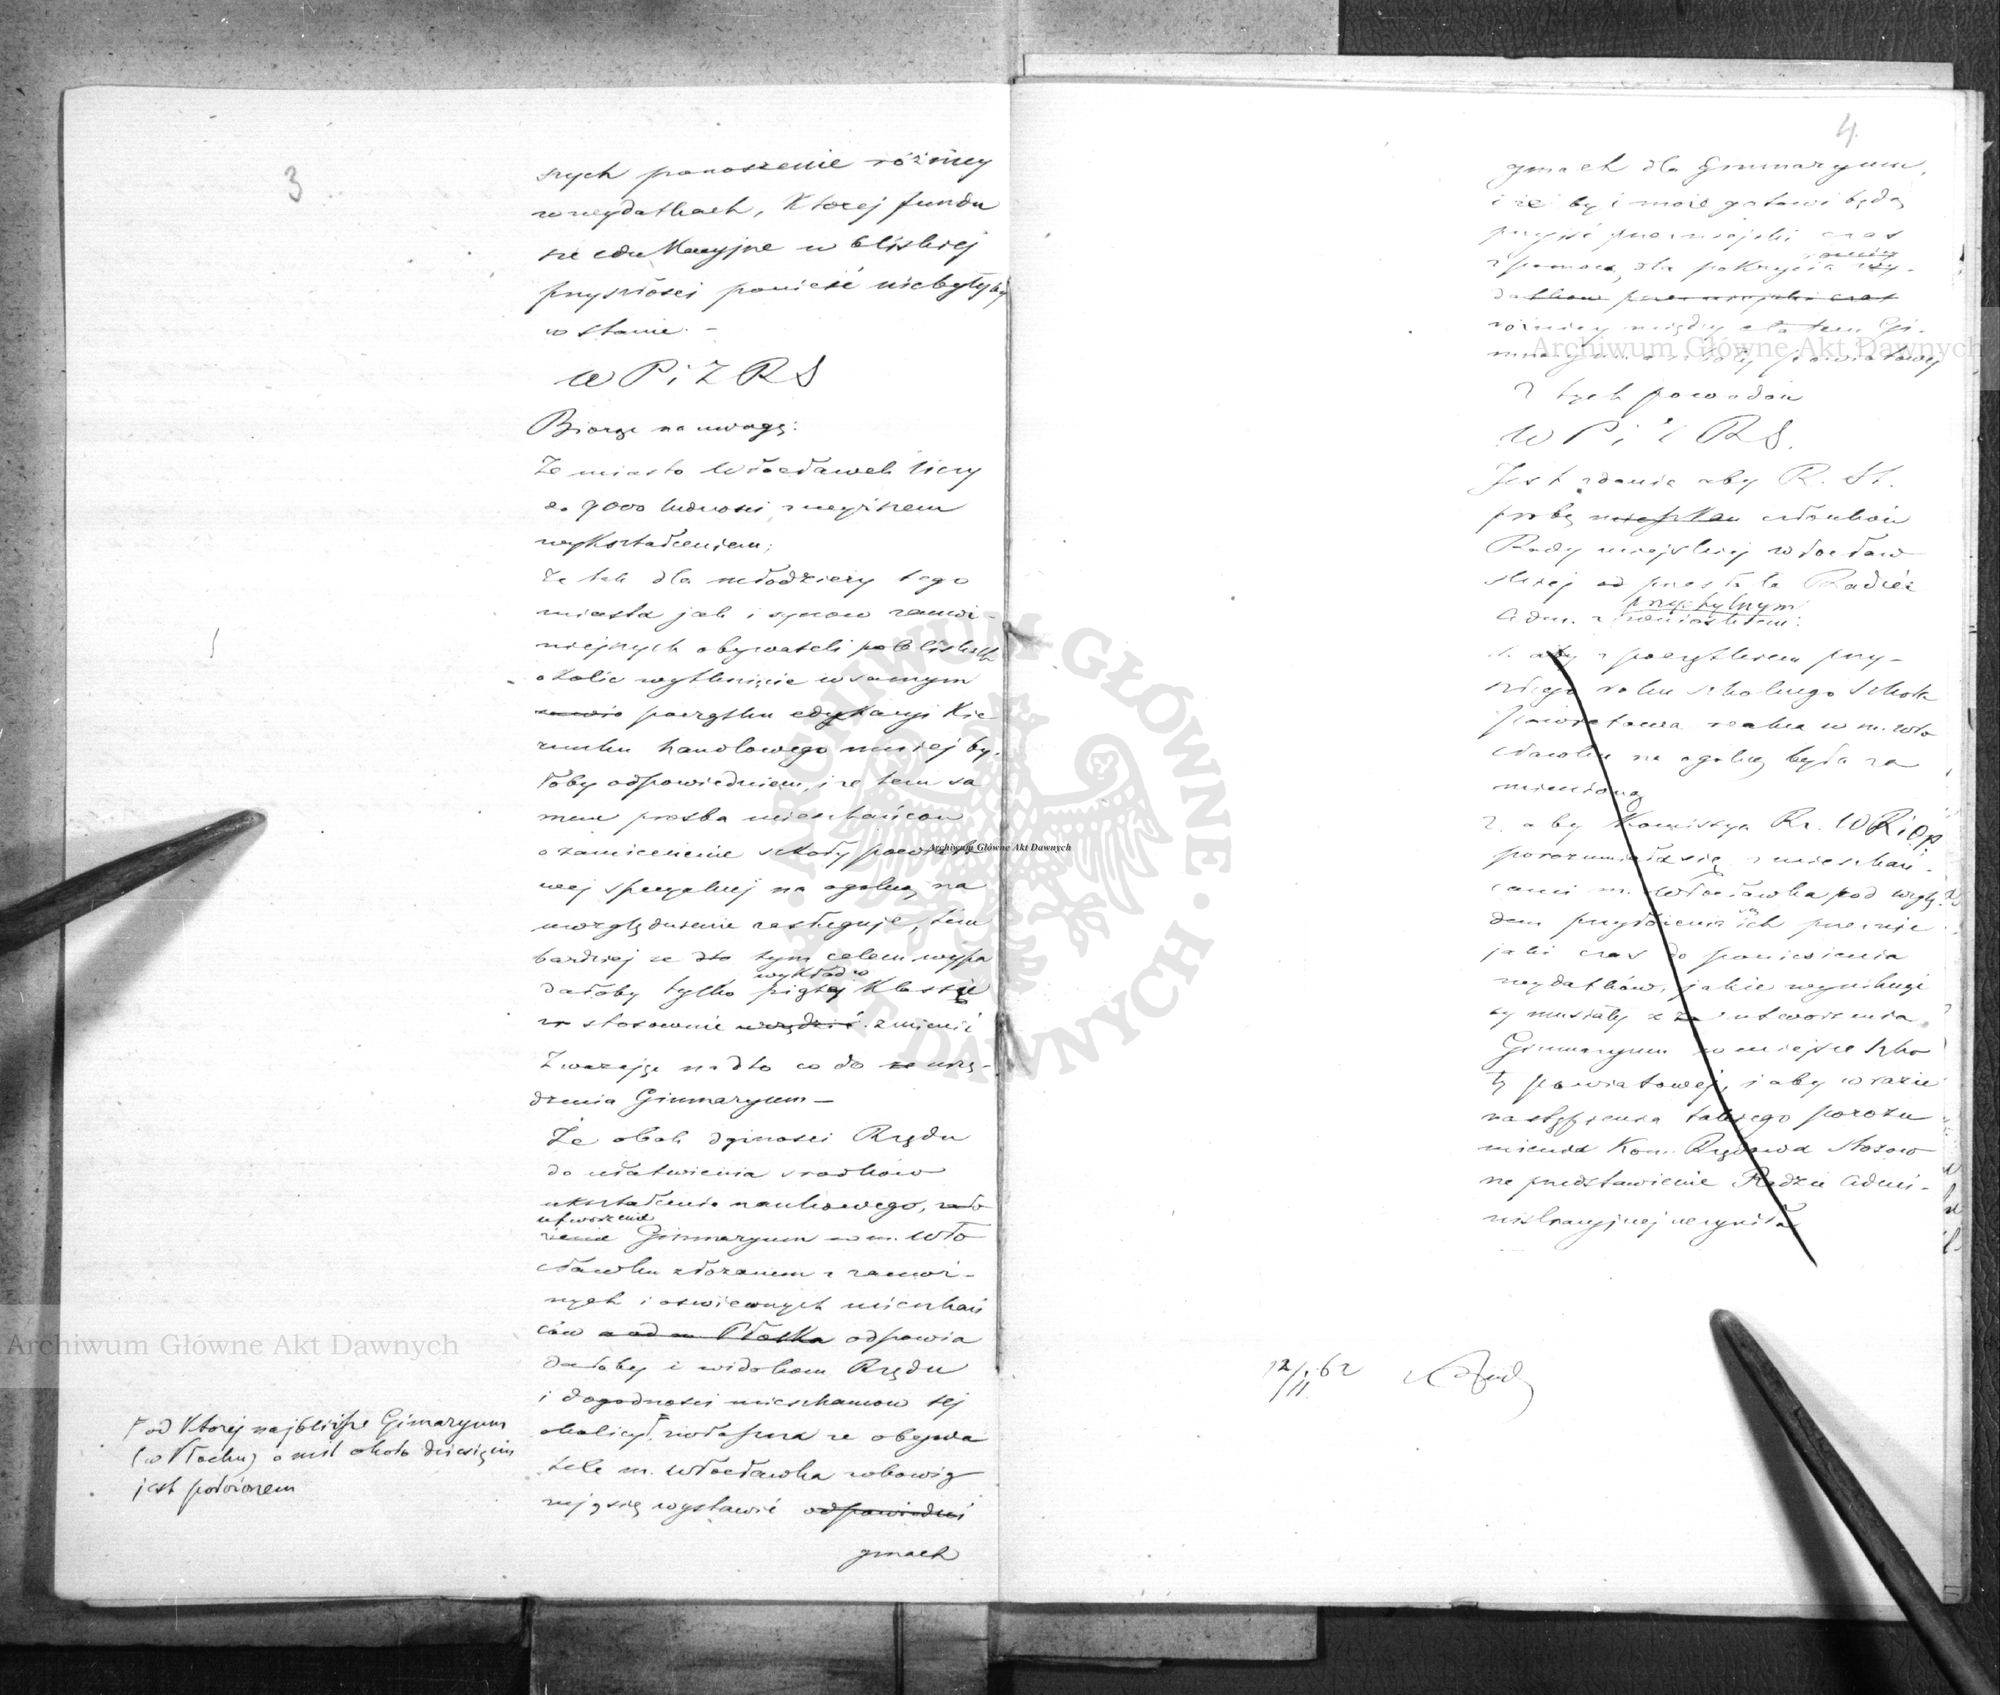 3
szych ponoszenie różnicy
w wydatkach, której fundu
sze edukacyjne w bliskiej
przyszłości ponieść niebyłyby
w stanie. –
W P i Z R S
Biorąc na uwagę:
Że miasto Włocławek liczy
do 9000 ludności z wyższem
wykształceniem;
Że tak dla młodzieży tego
miasta jak i synów zamoż-
niejszych obywateli pobliskich
okolic wytknięcie w samym
początku edukacyi kie
runku handlowego mniej by-
łoby odpowiedniem, i że tem sa
mem prośba mieszkańców
o zamienienie szkoły powiato
wej specyalnej na ogólną na
uwzględnienie zasługuje, tem
bardziej że dto tym celem wypa
dałoby tylko wykład w piątej klassie
stosownie urządzić zmienić
Zważając nadto co do urzą-
dzenia Gimnazyum –
Że obok dążności Rządu
do ułatwienia środków
ukształcenia naukowego,
utworzenie
Gimnazyum w m. Wło
cławku złożonem z zamoż-
nych i oświeconych mieszkań
ców a od m. Płocka odpowia
dałoby i widokom Rządu
i dogodności mieszkańców tej
okolicy, zwłaszcza że obywa
tele m. Włocławka zobowią
zują się wystawić odpowiedni
gmach
od której najbliższe Gimnazyum
(w Płocku) o mil około dziesięciu
jest położonem
4
gmach dla Gimnazyum,
i że by i może gotowi będą
przyjść przez niejaki czas
z pomocą, dla pokrycia wy-
datków przez niejaki czas
różnicy między etatem Gi-
mnazyum a szkoły powiatowej
Z tych powodów
W P i Z R S.
Jest zdania aby R. St.
prośbę mieszkań członków
Rady miejskiej włocław
skiej od przesłała Radzie
przychylnym
Adm. z wnioskiem:
1. aby z początkiem przy-
szłego roku szkolnego Szkoła
Powiatowa realna w m. Wło
cławku na ogólną była za
mienioną
2. aby Komissya Rz. W R i O P
porozumiała się z mieszkań-
cami m. Włocławka pod wzglę-
dem przyłożenia się ich przez nie
jaki czas do poniesienia
wydatków, jakie wyniknąć
by musiały z utworzenia
Gimnazyum w miejsce szko
ły powiatowej, i aby w razie
nastąpienia takiego porozu
mienia Kom. Rządowa stosow
ne przedstawienie Radzie Admi-
nistracyjnej uczyniła
12/11 62